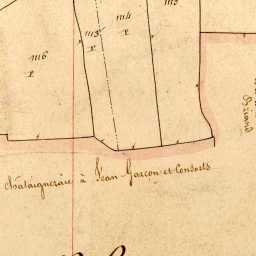 1113
1114
1115
P
P
1116
P
Briand
Chataigneraie à Jean Garçon et Consorts